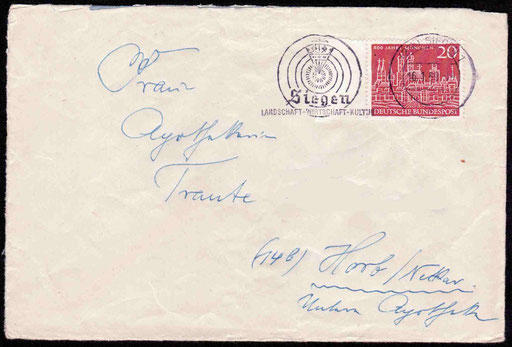 (21) SIEGEN
Siegen
LANDSCHAFT-WIRTSCHAFT-KULTUR
800 JAHRE MÜNCHEN
20
DEUTSCHE BUNDESPOST
Frau
Apothekerin
Traute
(14B) Horb/Neckar
Untere Apotheke